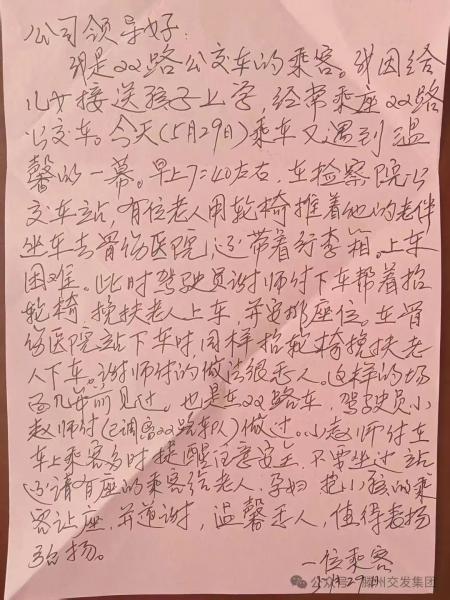 公司领导好:
我是22路公交车的乘客。我因给
儿女接送孩子上学,经常乘座22路
公交车。今天(5月29日)乘车又遇到温
馨的一幕。早上7:40左右,在检察院公
交车站,有位老人用轮椅推着他的老伴
坐车去骨伤医院,还带着行李箱。上车
困难。此时驾驶员谢师付下车帮着抬
轮椅,搀扶老人上车,并安排座位。在骨
伤医院站下车时,同样抬轮椅搀扶老
人下车。谢师付的做法很感人。这样的场
面几年前见过,也是在22路车,驾驶员小
赵师付(已调离22路车队)做过。小赵师付在
车上乘客多时提醒注意安全,不要坐过站
还请有座的乘客给老人,孕妇抱小孩的乘
客让座,并道谢,温馨感人,值得表扬
一位乘客
5月29日
公众号·滕州交发集团